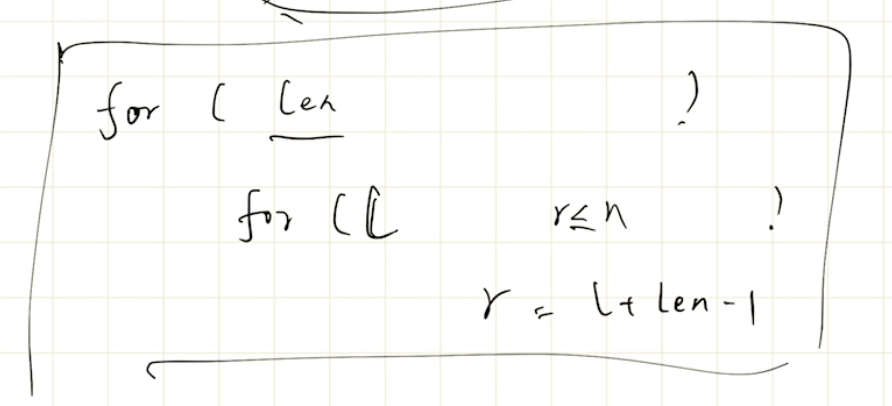 for ( len )
for ( l r≤n )
r = l + len - 1